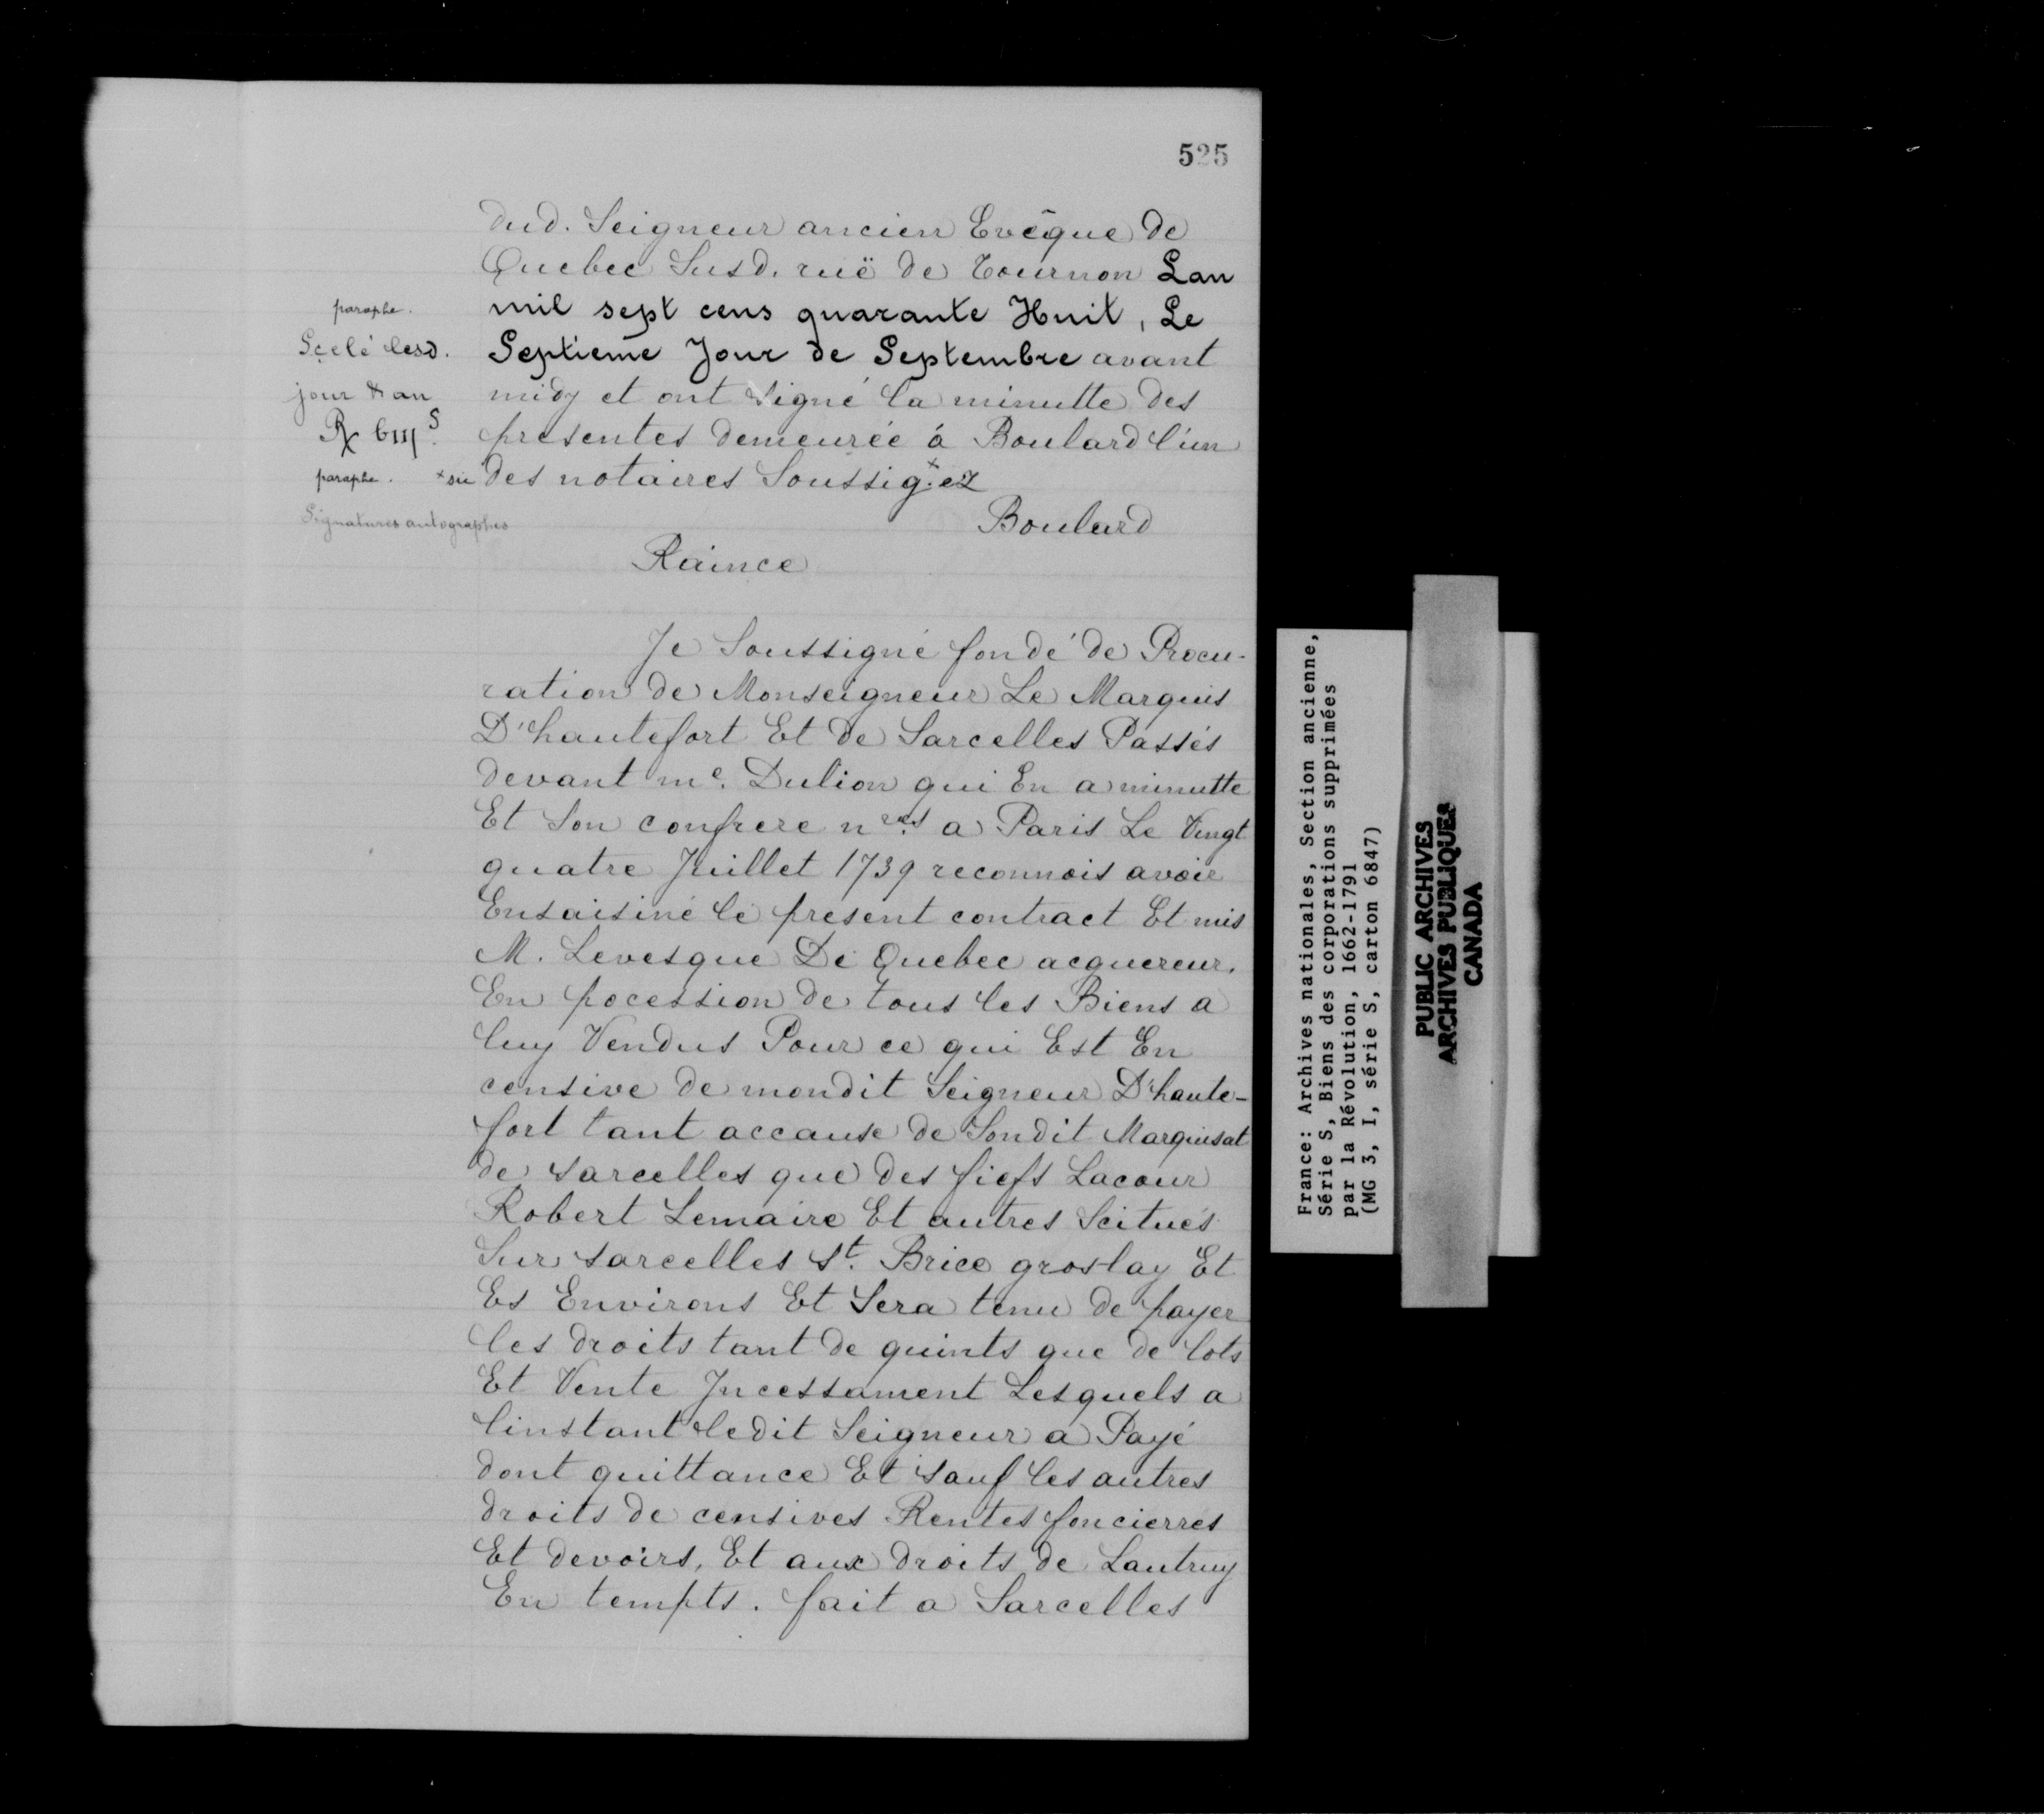 525
dud. Seigneur ancien Evêque de
Quebec Susd. ruë de Tournon Lan
mil sept cens quarante Huit, Le
Septieme Jour de Septembre avant
midy et ont signé la minutte des
presentes demeurée à Boulard l'un
des notaires Soussig.×ez
Boulard
Raince
paraphe.
Sçelé lesd.
jour & an
paraphe.
×sic
Signatures autographes
Je Soussigné fondé de Procu-
ration de Monseigneur Le Marquis
D'hautefort Et de Sarcelles Passés
devant me. Dulion qui En a minutte
Et Son confrere nres a Paris Le Vingt
quatre Juillet 1739 reconnois avoir
Ensaisiné le present contract Et mis
M. Levesque De Quebec acquereur.
En pocession de tous les Biens a
luy Vendus Pour ce qui Est En
censive de mondit Seigneur D'haute-
fort tant accause de Sondit Marquisat
de Sarcelles que des fiefs Lacour
Robert Lemaire Et autres Scitués
Sur Sarcelles St. Brice groslay Et
Es Environs Et Sera tenu de payer
les droits tant de quints que de lots
Et Vente Incessament Lesquels a
linstant ledit Seigneur a Payé
dont quittance Et sauf les autres
droits de censives Rentes foncierres
Et devoirs, Et aux droits de Lautruy
En tempts. fait a Sarcelles
France: Archives nationales, Section ancienne,
Série S, Biens des corporations supprimées
par la Révolution, 1662-1791
(MG 3, I, série S, carton 6847)
PUBLIC ARCHIVES
ARCHIVES PUBLIQUES
CANADA